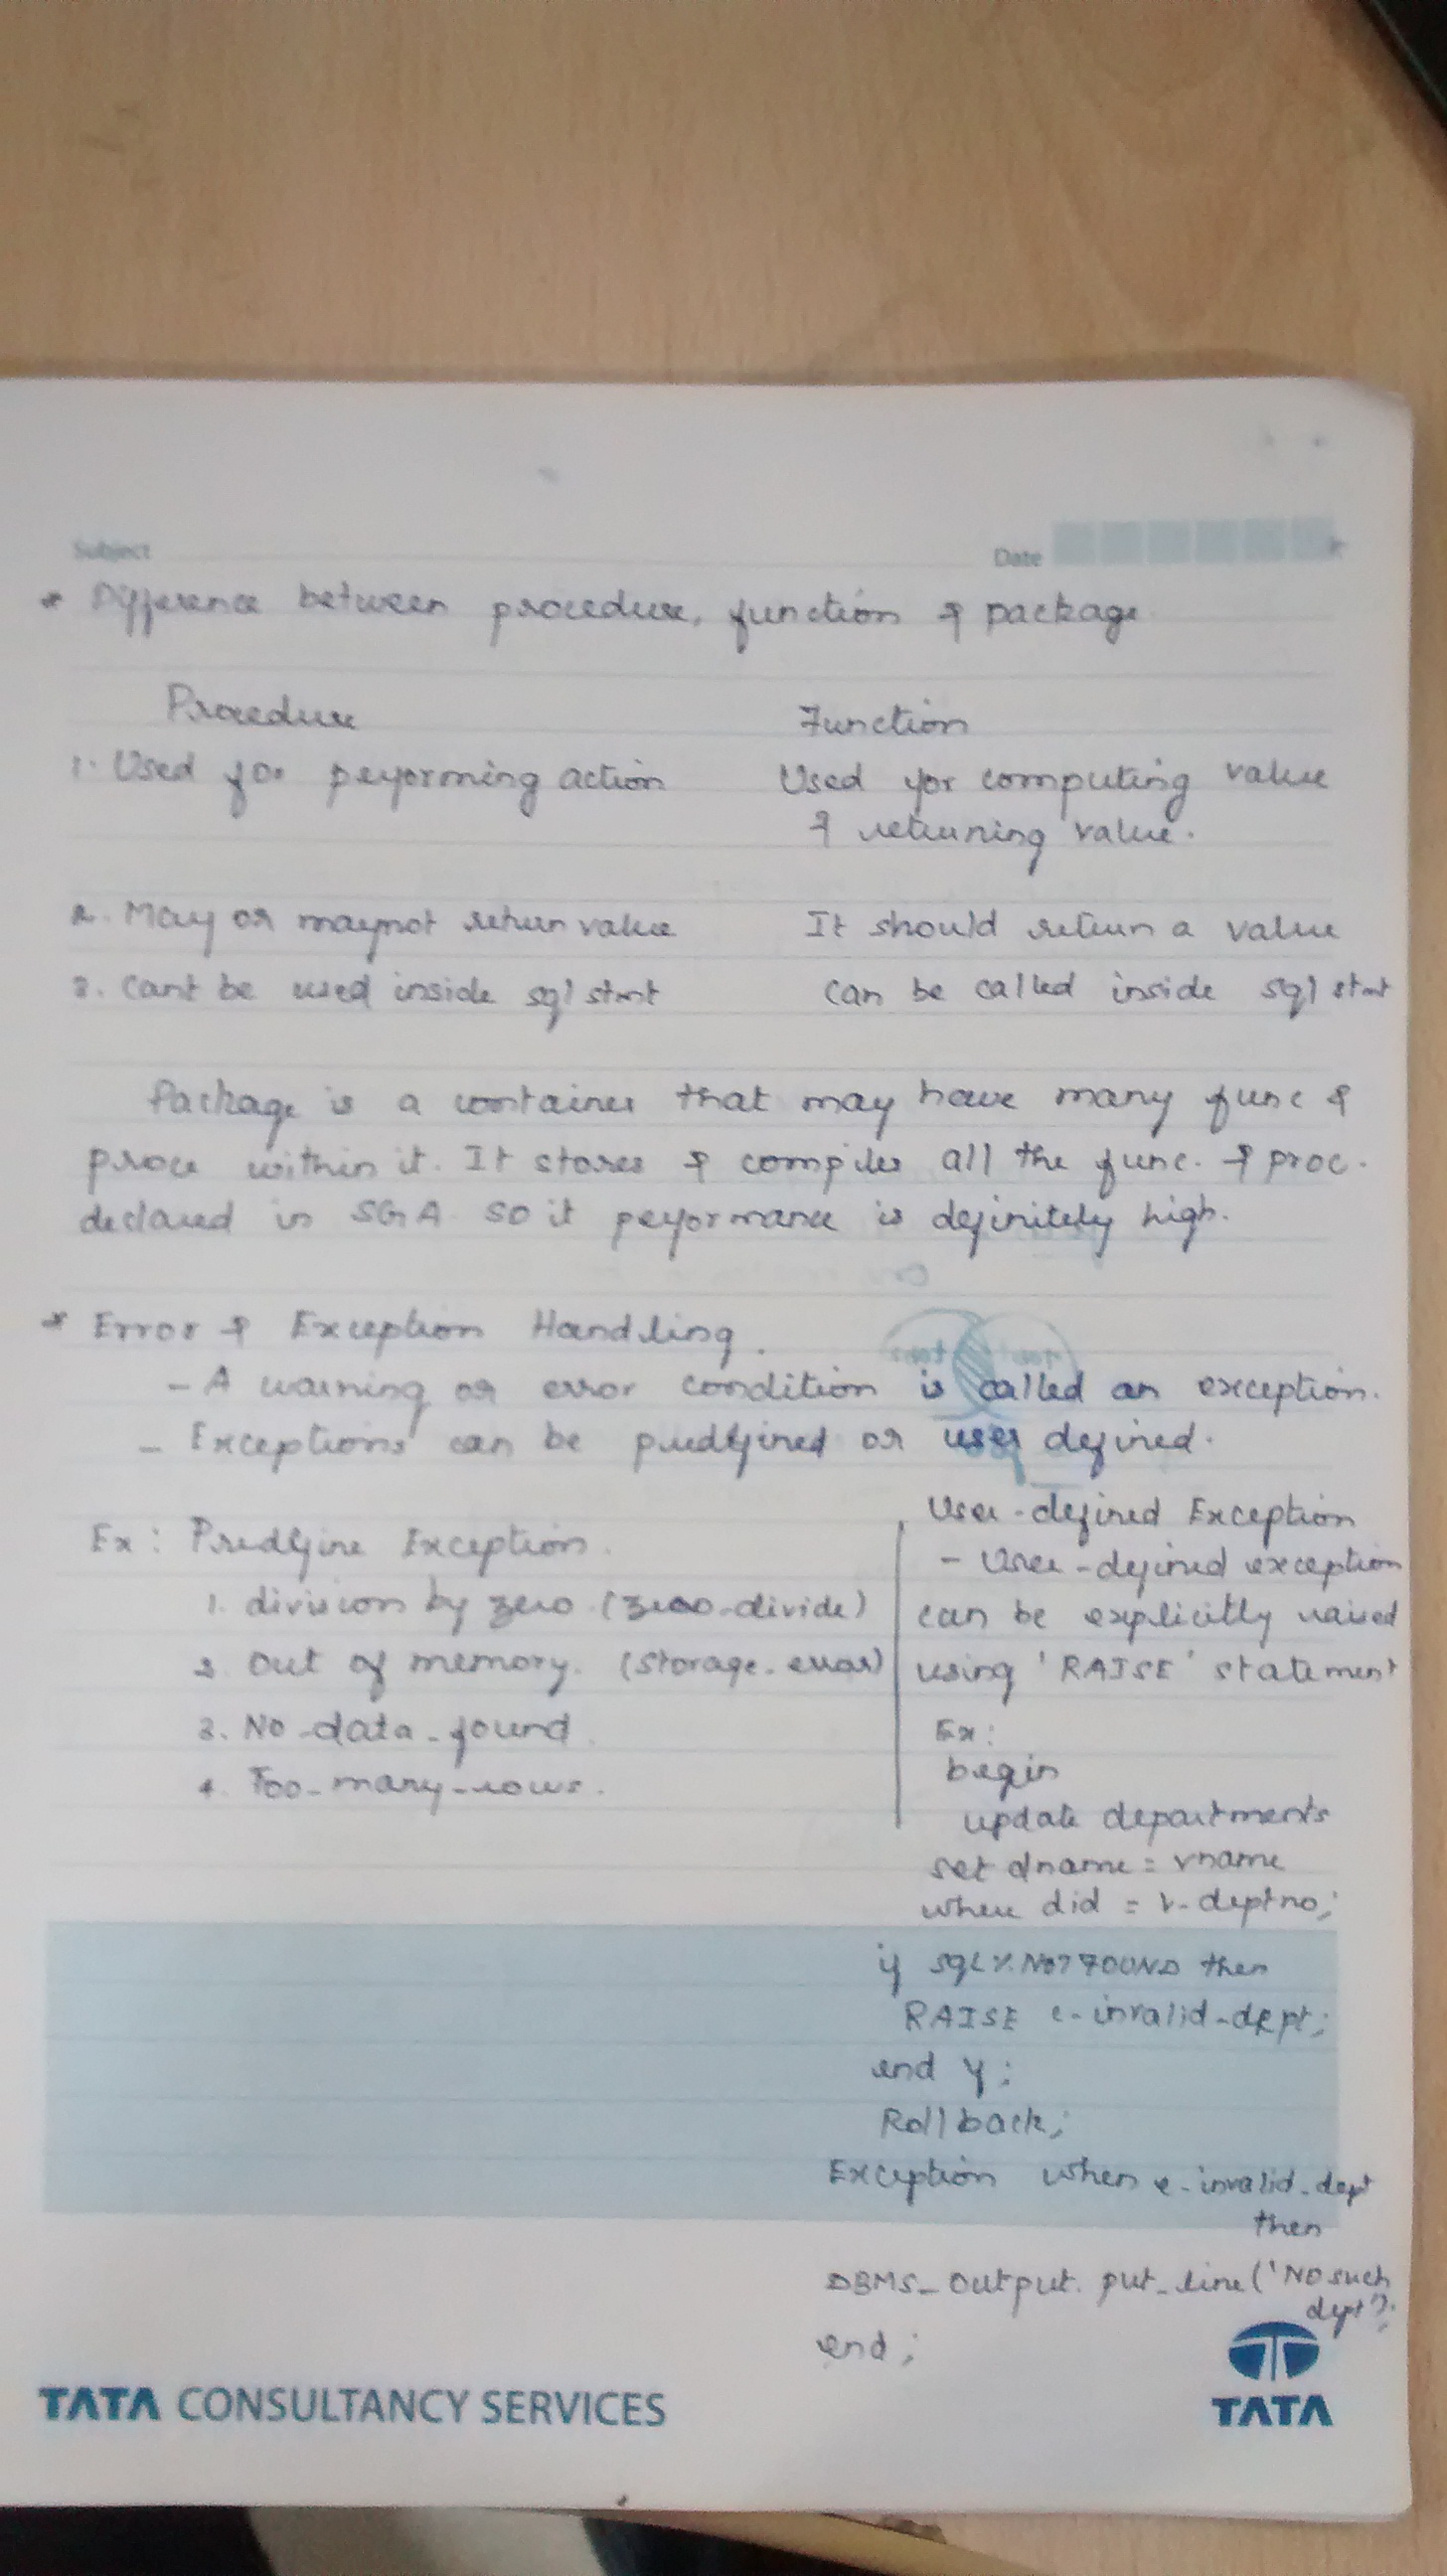 Subject Date
* Difference between procedure, function & package
Procedure Function
1. Used for performing action Used for computing value
& returning value.
2. May or maynot return value It should return a value
3. Cant be used inside sql stmt can be called inside sql stmt
Package is a container that may have many func &
proce within it. It stores & compiles all the func. & proc.
declared in SGA so it performance is definitely high.
* Error & Exception Handling.
- A warning or error condition is called an exception.
- Exceptions can be predefined or user defined.
Ex: Predefine Exception.
1. division by zero (zero-divide)
2. Out of memory. (storage-error)
3. No-data-found.
4. Too-many-rows.
User-defined Exception
- User-defined exception
can be explicitly raised
using 'RAISE' statement
Ex:
begin
update departments
set dname = vname
where did = v-deptno;
if SQL%NOTFOUND then
RAISE e-invalid-dept;
end if;
Rollback;
Exception when e-invalid-dept
then
DBMS_Output.put_line('No such
dept');
end;
TATA CONSULTANCY SERVICES
TATA